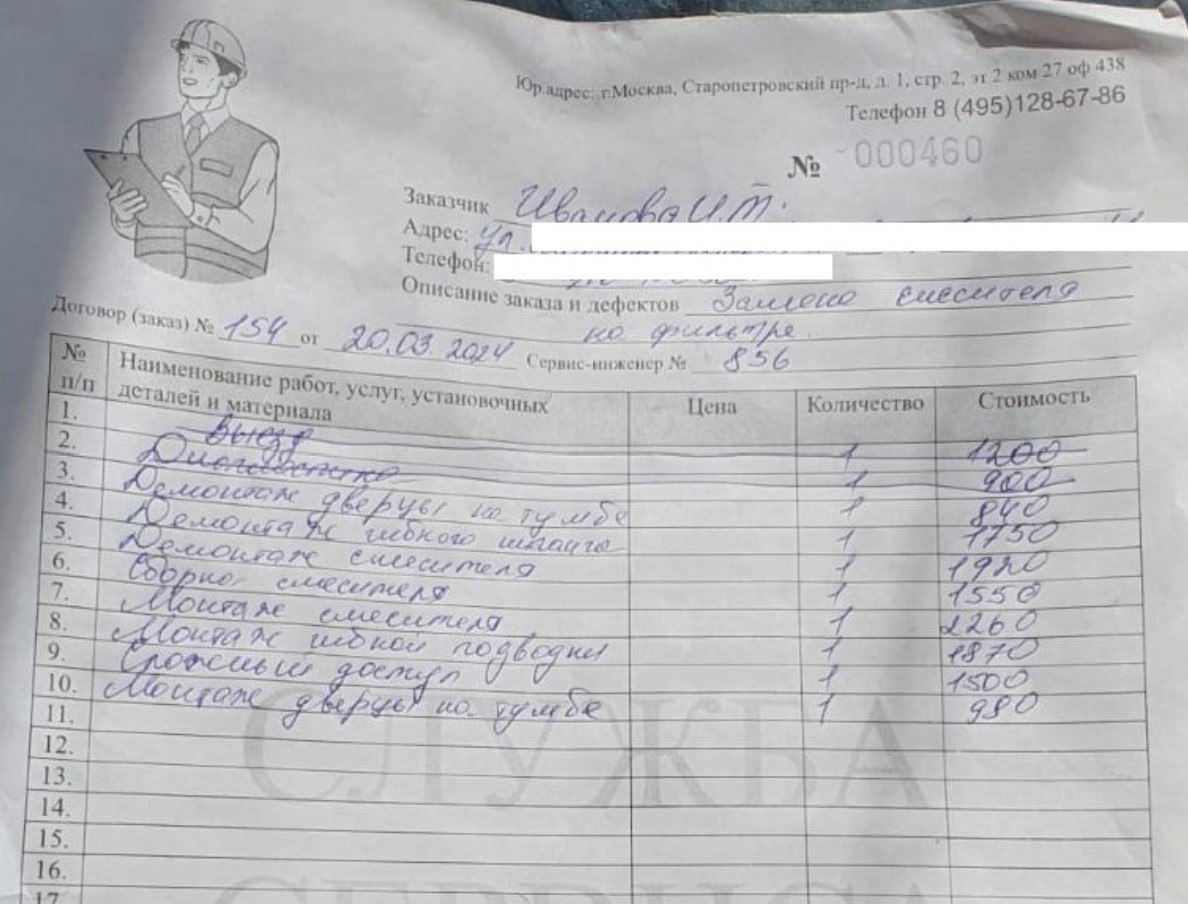 Юр.адрес: г.Москва, Старопетровский пр-д, д. 1, стр. 2, эт 2 ком 27 оф 438
Телефон 8 (495)128-67-86
№ 000460
Заказчик Иванова И.Т.
Адрес: ул.
Телефон:
Описание заказа и дефектов Замена смесителя
на фильтре
Договор (заказ) № 154 от 20.03.2024 Сервис-инженер № 856
№ п/п Наименование работ, услуг, установочных деталей и материала Цена Количество Стоимость
1. Выезд 1 1200
2. Диагностика 1 900
3. Демонтаж дверцы на тумбе 1 840
4. Демонтаж гибкого шланга 1 1750
5. Демонтаж смесителя 1 1920
6. Сборка смесителя 1 1550
7. Монтаж смесителя 1 2260
8. Монтаж гибкой подводки 1 1870
9. Сложный доступ 1 1500
10. Монтаж дверцы на тумбе 1 980
11.
12.
13.
14.
15.
16.
17.
СЛУЖБА
СЕРВИСА